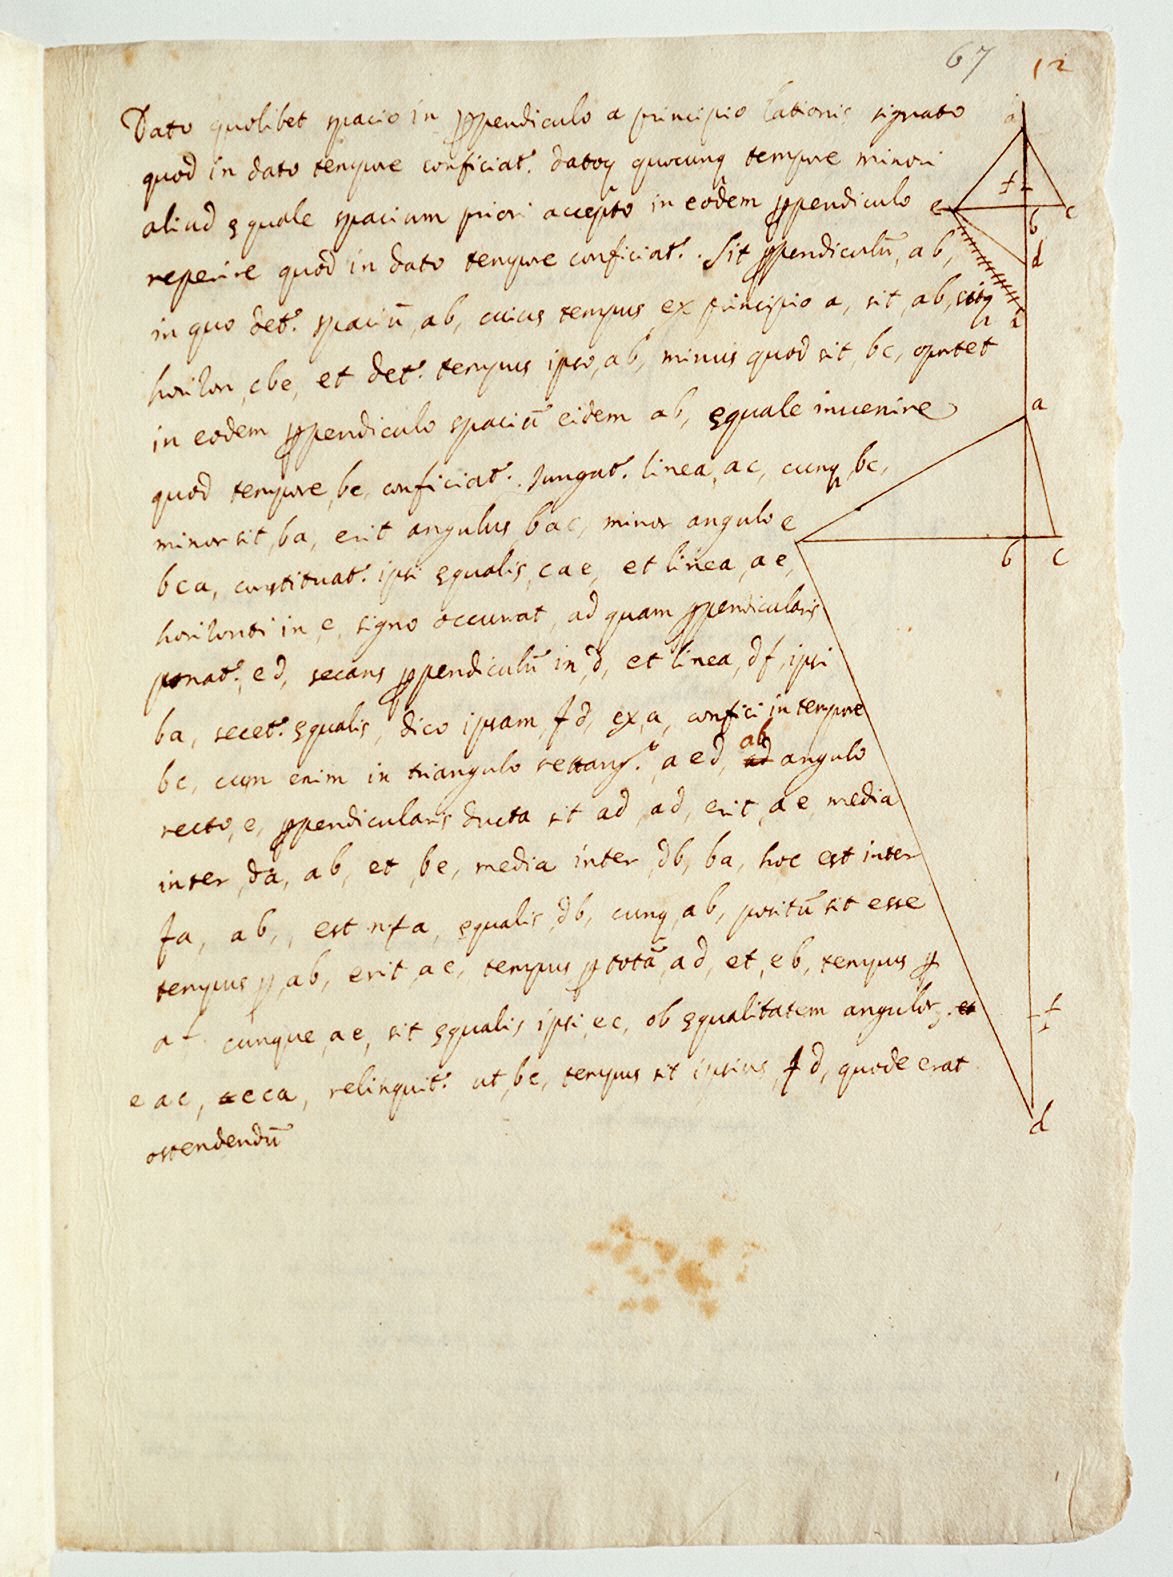 67 12
Dato quolibet spacio in ꝑpendiculo a principio lationis signato
quod in dato tempore conficiatʳ. datoqꝫ quocunqꝫ tempore minori
aliud ęquale spacium priori acceptō in eodem ꝑpendiculo
reperire quod in dato tempore conficiatʳ. Sit ꝑpendiculū, ab,
in quo detʳ. spaciū, ab, cuius tempus ex principio a, sit, ab, sitqꝫ
horizon, cbe, et detʳ. tempus ipso, ab, minus quod sit, bc, oportet
in eodem ꝑpendiculo spaciū eidem ab, ęquale invenire
quod tempore, bc, conficiatʳ. Jungatʳ. linea, ac, cumqꝫ, bc,
minor sit, ba, erit angulus bac, minor angulo
bca, constituatʳ. ipsi ęqualis, cae, et linea, ae,
horizonti in, e, signo occurrat, ad quam ꝑpendicularis
ponatʳ, ed, secans ꝑpendiculū in, d, et linea, df, ipsi
ba, secetʳ. ęqualis, dico ipsam, fd, ex, a, confici in tempore
bc, cum enim in triangulo rectangº. aed, ab angulo
recto, e, ꝑpendicularis ducta sit ad, ad, erit, ae, media
inter, da, ab, et, be, media inter, db, ba, hoc est inter
fa, ab, est n. fa, ęqualis, db, cumqꝫ, ab, positū sit esse
tempus ꝑ, ab, erit, ae, tempus ꝑ totā, ad, et, eb, tempus ꝑ
af cunque, ae, sit ęqualis ipsi, ec, ob ęqualitatem angulorꝫ. et
eac, eca, relinquitʳ. ut, bc, tempus sit ipsius, fd, quod erat
ostendendū
a
f
e b c
d
a
e
b c
f
d